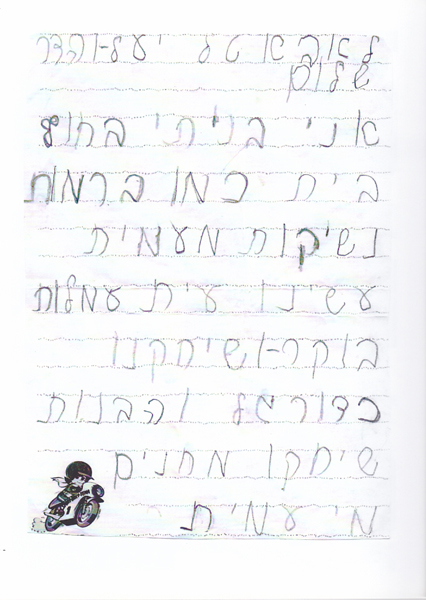 לאבא טל יעל-והדר
שלום
אני בניתי בחול
בית כמו ברמות
נשיקות מעמית
עשינו עית עמלות
בוקר-ושיחקנו
כדורגל והבנות
שיחקו מחנים
מי עמית